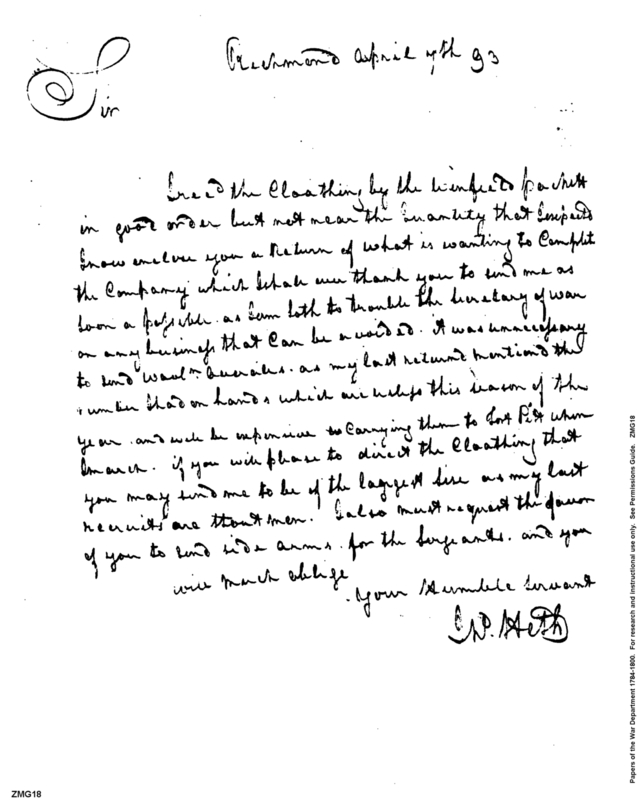 Richmond April 7th 93
Sir
I rec'd the Cloathing by the Winfred packett
in good order but not near the Quantity that I expected
I now enclose you a Return of what is wanting to Complet
the Company which I shall ever thank you to send me as
soon a possible as I am loth to trouble the Secretary of war
on any business that Can be avoided. it was unnecessary
to send Overalls. as my last return mentiond the
number I had on hand which are useless this season of the
year. and will be expensive Carrying them to Fort Pitt when
I march. if you will please to direct the Cloathing that
you may send me to be of the largest Sise as my last
recruits are stout men. I also must request the favour
of you to send side arms. for the Sergeants. and you
will much oblige
your Humble Servant
Heth
ZMG18
Papers of the War Department 1784-1800. For research and instructional use only. See Permissions Guide. ZMG18